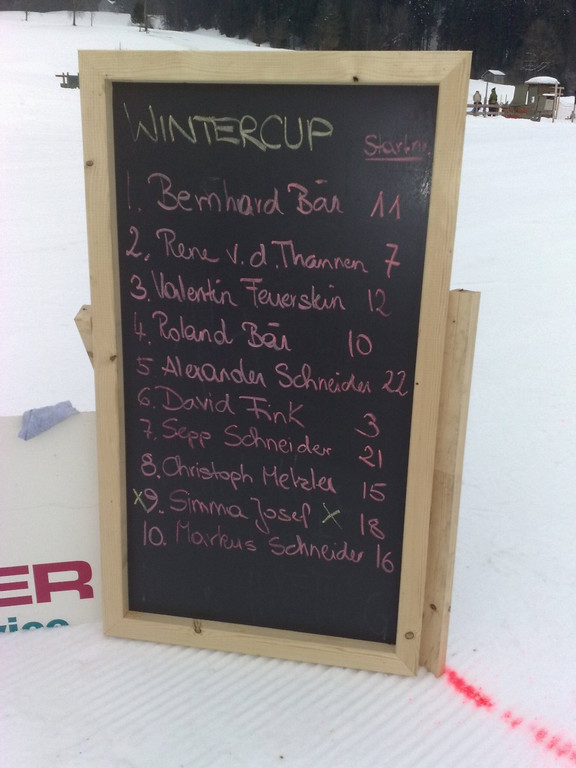 WINTERCUP
Startnr.
1. Bernhard Bär 11
2. Rene v. d. Thannen 7
3. Valentin Feuerstein 12
4. Roland Bär 10
5 Alexander Schneider 22
6. David Fink 3
7. Sepp Schneider 21
8. Christoph Metzler 15
x9. Simma Josef x 18
10. Markus Schneider 16
ER
vice